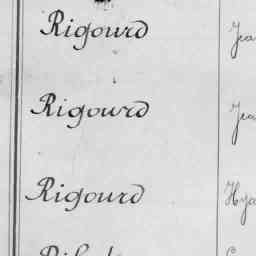 Rigourd Jea
Rigourd Jea
Rigourd Hya